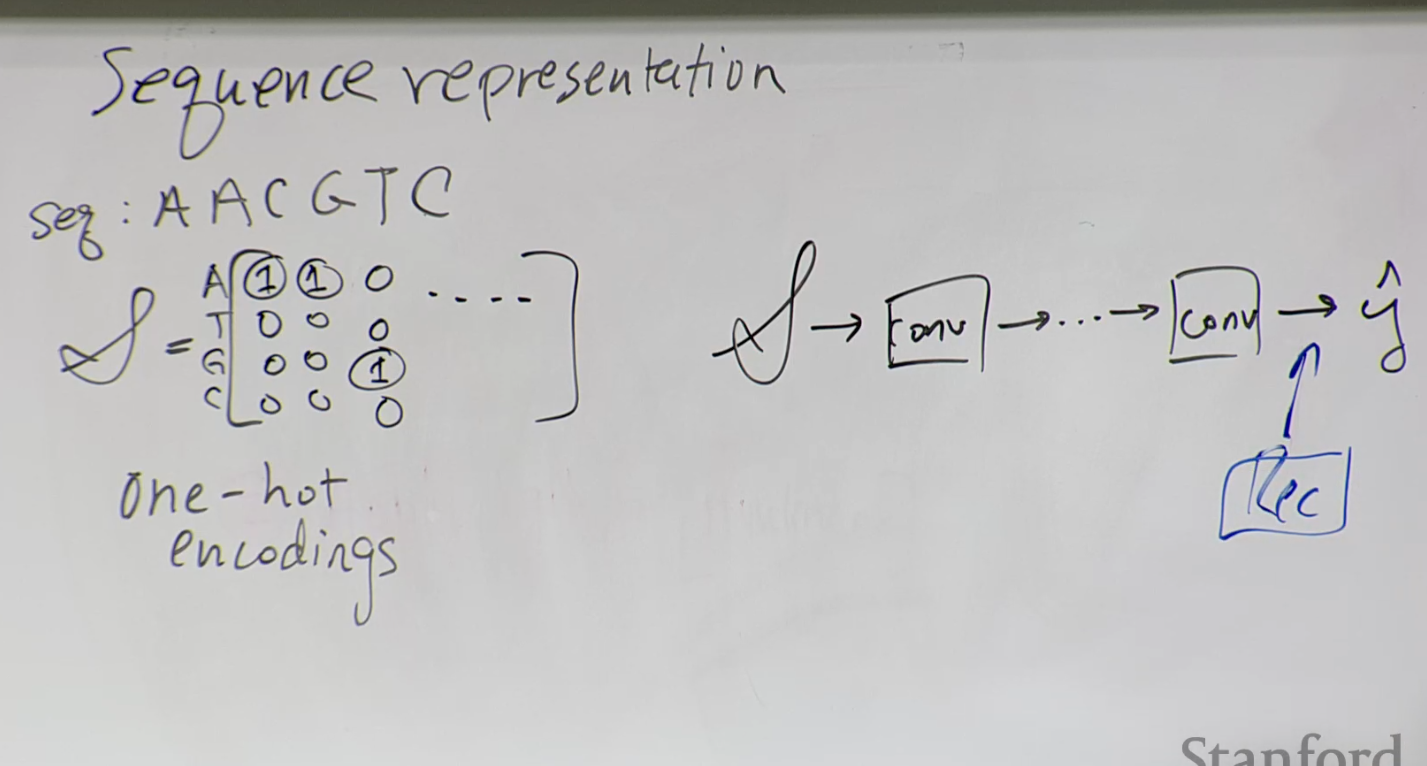 Sequence representation
seq: A A C G T C
S = A [ 1 1 0 .... ]
T 0 0 0
G 0 0 1
C 0 0 0
one-hot
encodings
S → conv → ... → conv → ŷ
Rec
Stanford